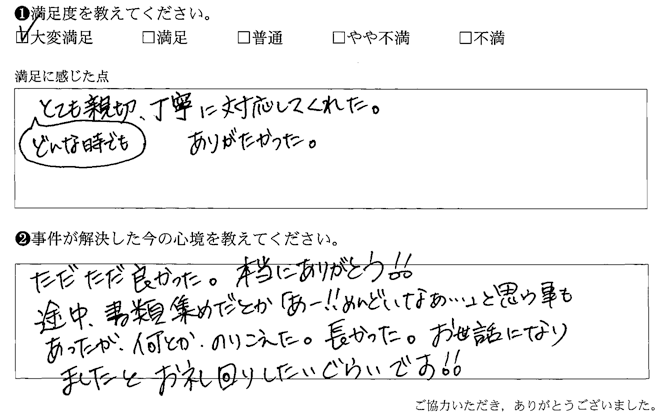 ❶満足度を教えてください。
☑大変満足 □満足 □普通 □やや不満 □不満
満足に感じた点
とても親切、丁寧に対応してくれた。
どんな時でも ありがたかった。
❷事件が解決した今の心境を教えてください。
ただただ良かった。本当にありがとう!!
途中、書類集めだとか「あー!!めんどいなぁ…」と思う事も
あったが、何とか、のりこえた。長かった。お世話になり
ましたと お礼回りしたいぐらいです!!
ご協力いただき、ありがとうございました。